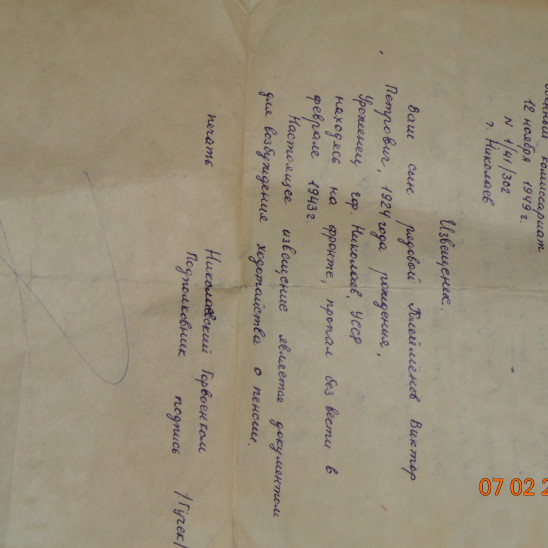 военный комиссариат
12 ноября 1949 г.
N 1/41/302
г. Николаев
Извещение.
Ваш сын рядовой Виктор
Петрович, 1924 года рождения,
Уроженец гор. Николаев, УССР
находясь на фронте, пропал без вести в
феврале 1943 г.
Настоящее извещение является документом
для возбуждения ходотайства о пенсии.
печать Николаевский Горвоенком
Подполковник подпись /Гучек/
07 02 2